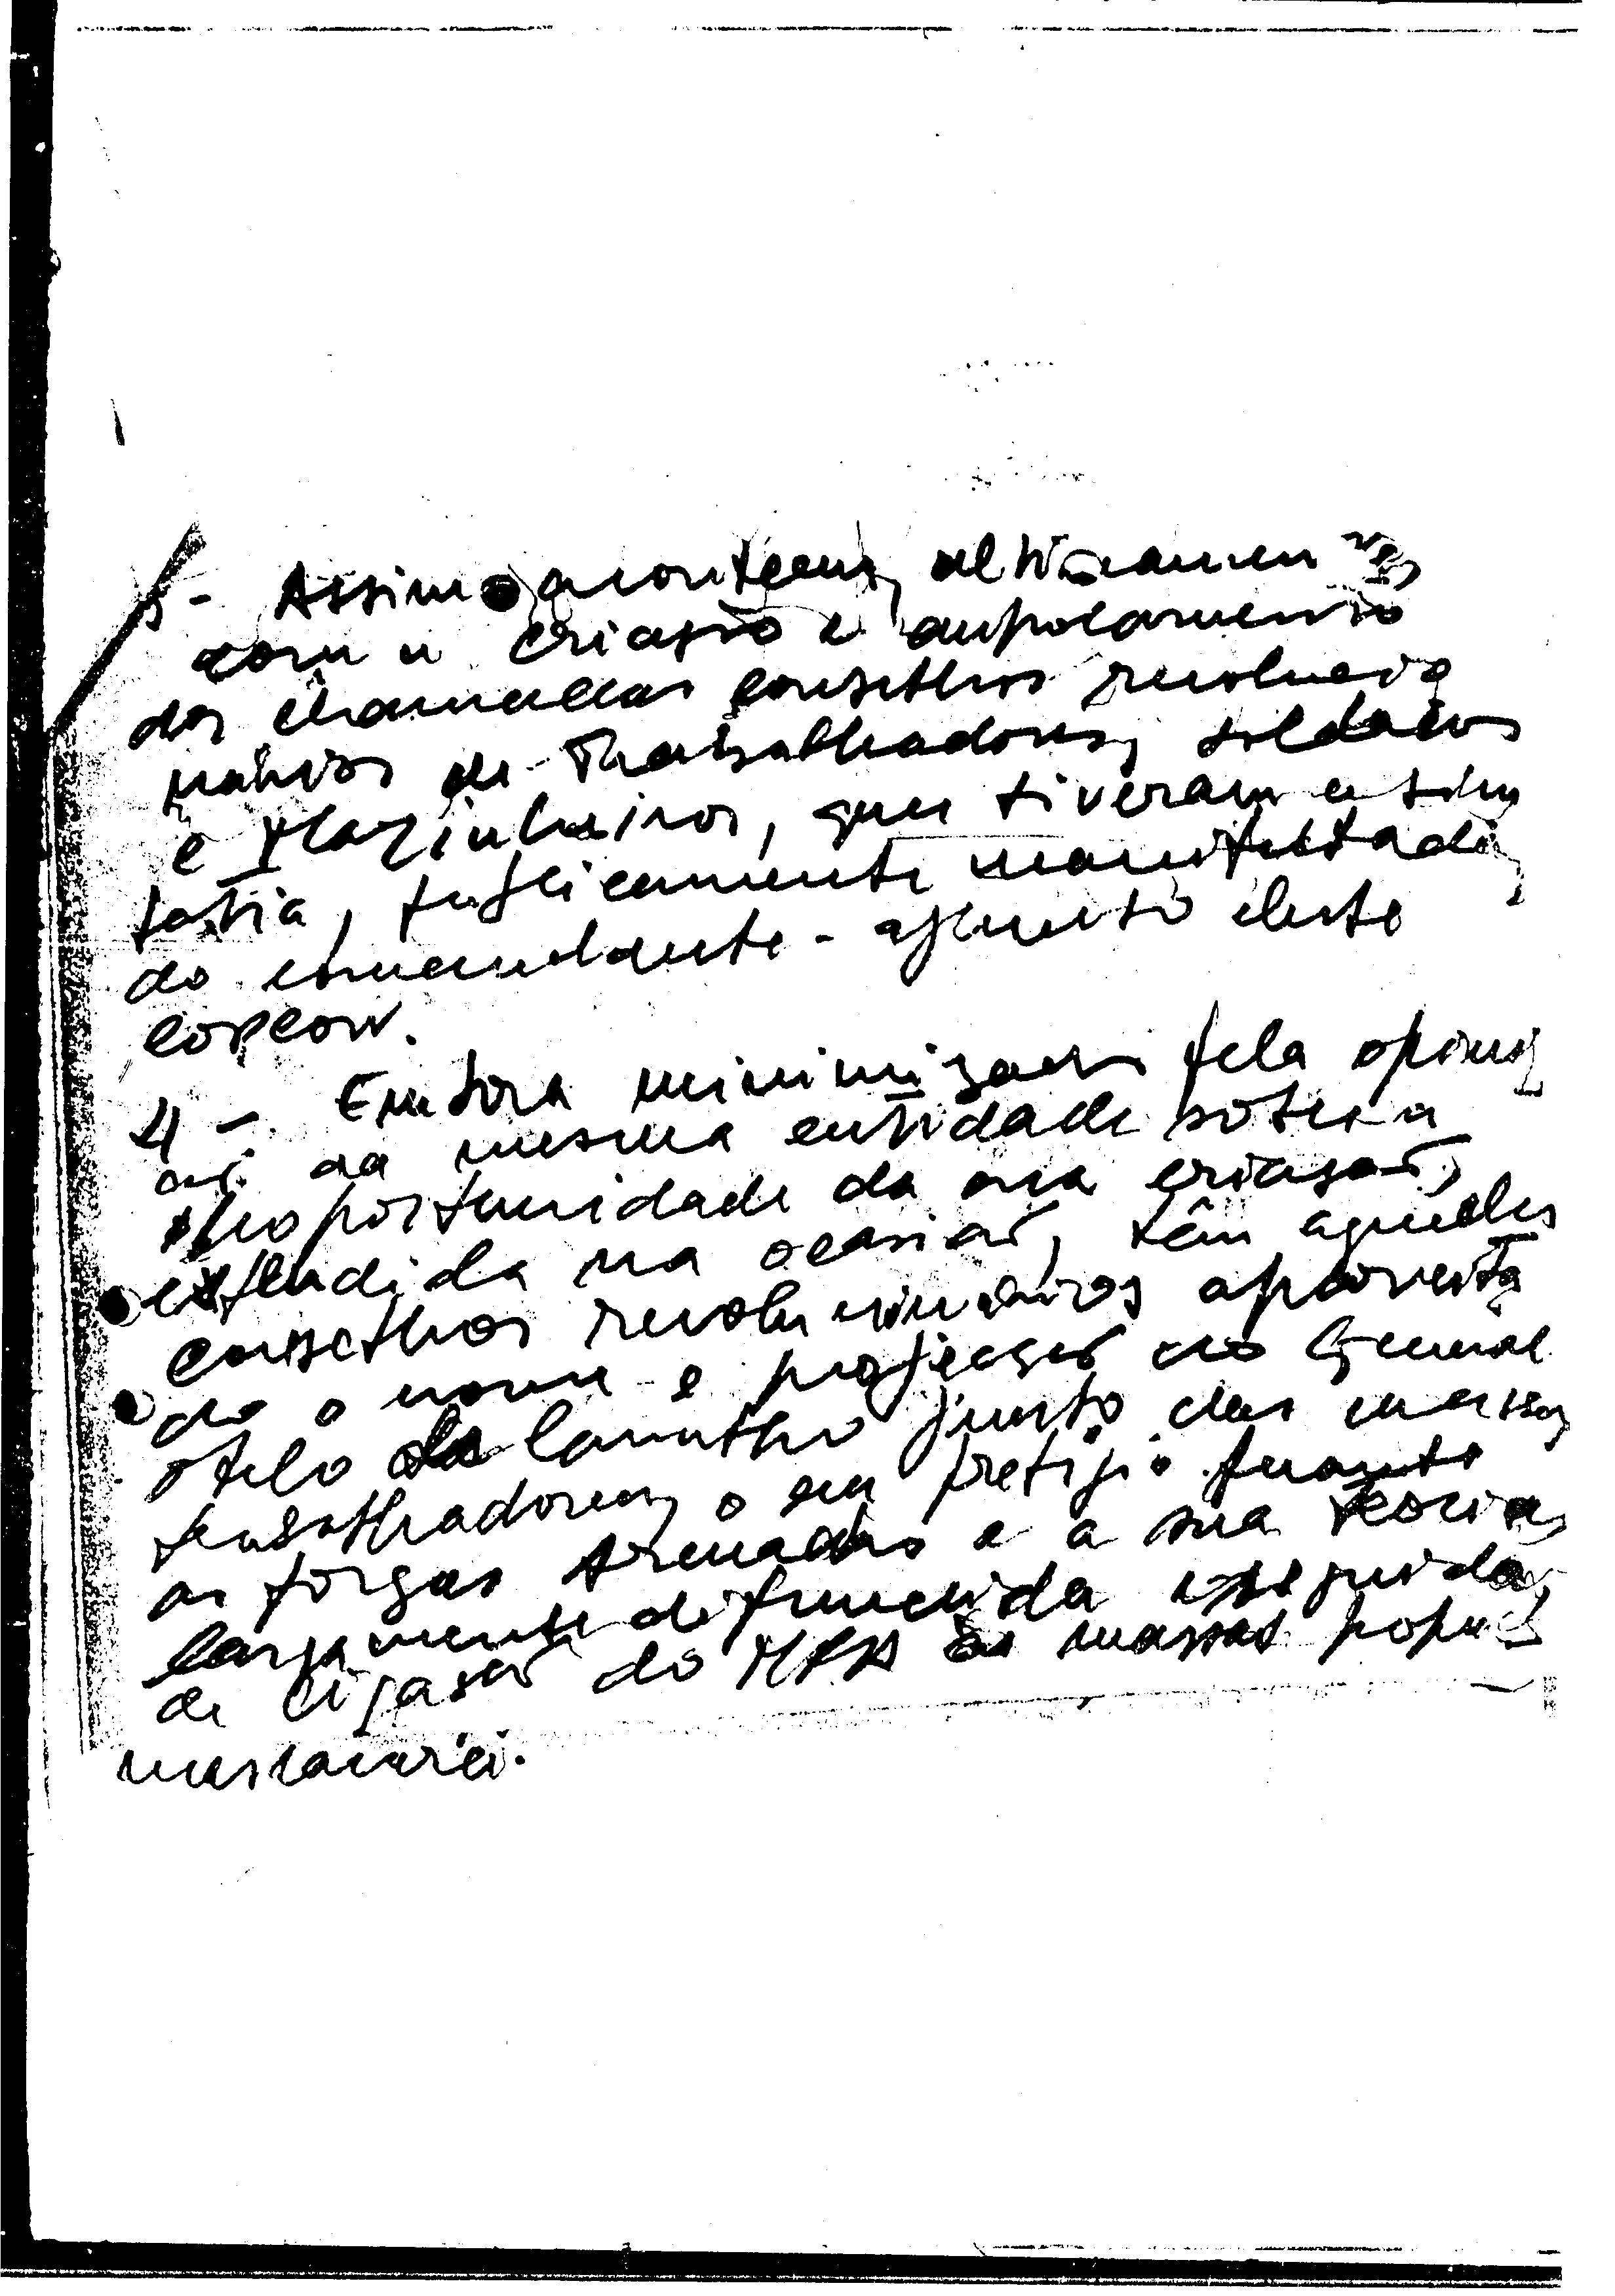 3 - Assim aconteceu, ultimamente,
com a criação e empolamento
dos chamados conselhos revolucio
nários de Trabalhadores, soldados
e Marinheiros, que tiveram a sim
patia, publicamente manifestada,
do comandante-adjunto deste
COPCON.
4 - Embora minimizada pela opini
ão da mesma entidade sobre a
inoportunidade da sua criação,
expendida na ocasião, têm aqueles
conselhos revolucionários aproveita
do o nome e projecção do General
Otelo de Carvalho junto das massas
trabalhadoras, o seu prestígio perante
as forças Armadas e a sua teoria,
largamente difundida e seguida,
de ligação do MFA às massas popul